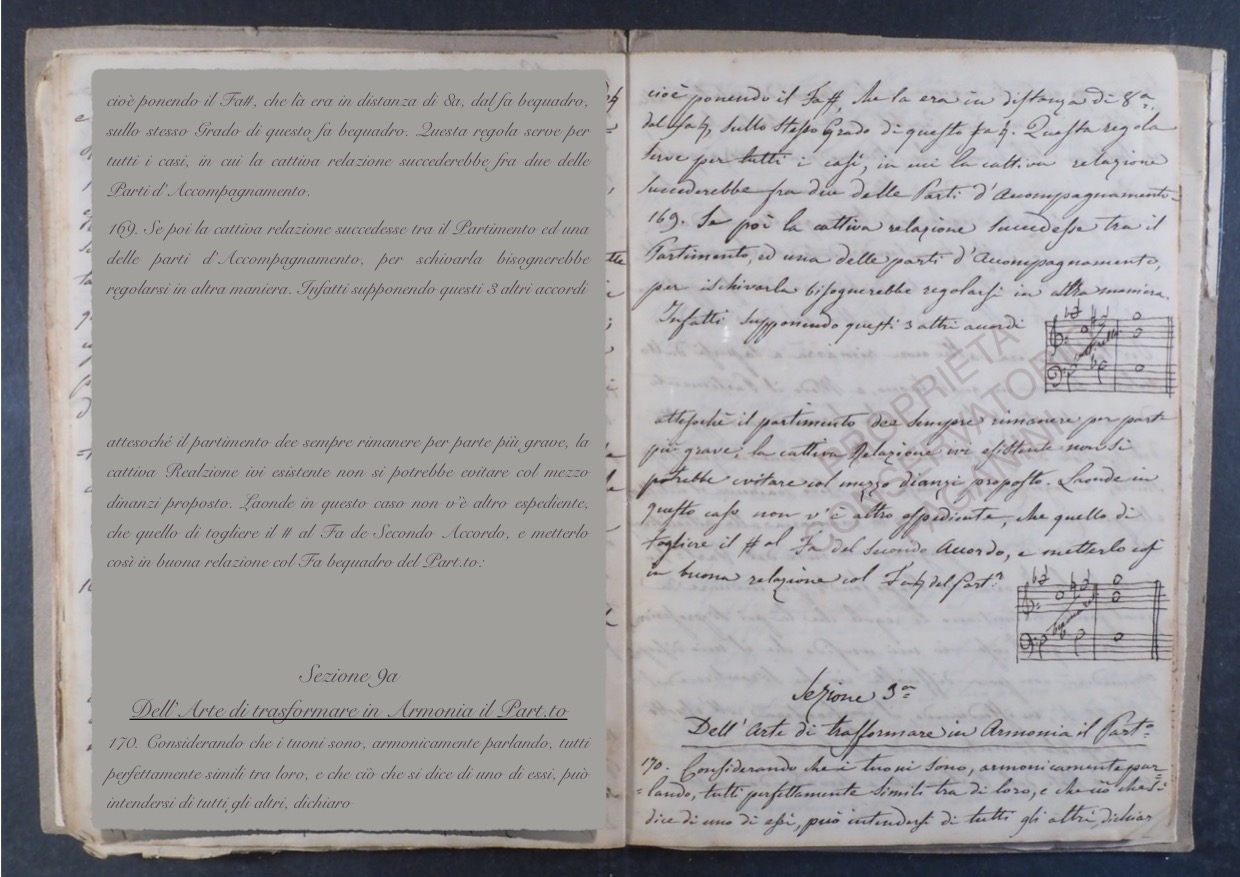 cioè ponendo il Fa#, che là era in distanza di 8a, dal fa bequadro,
sullo stesso Grado di questo fa bequadro. Questa regola serve per
tutti i casi, in cui la cattiva relazione succederebbe fra due delle
Parti d'Accompagnamento.
169. Se poi la cattiva relazione succedesse tra il Partimento ed una
delle parti d'Accompagnamento, per schivarla bisognerebbe
regolarsi in altra maniera. Infatti supponendo questi 3 altri accordi
attesoché il partimento dee sempre rimanere per parte più grave, la
cattiva Realzione ivi esistente non si potrebbe evitare col mezzo
dinanzi proposto. Laonde in questo caso non v'è altro espediente,
che quello di togliere il # al Fa de Secondo Accordo, e metterlo
così in buona relazione col Fa bequadro del Part.to:
Sezione 9a
Dell'Arte di trasformare in Armonia il Part.to
170. Considerando che i tuoni sono, armonicamente parlando, tutti
perfettamente simili tra loro, e che ciò che si dice di uno di essi, può
intendersi di tutti gli altri, dichiaro
cioè ponendo il Fa#, che la era in distanza di 8a,
dal fa♮, sullo stesso Grado di questo fa♮. Questa regola
serve per tutti i casi, in cui la cattiva relazione
succederebbe fra due delle Parti d'Acompagnamento.
169. Se poi la cattiva relazione succedesse tra il
Partimento, ed una delle parti d'Acompagnamento,
per ischivarla bisognerebbe regolarsi in altra maniera.
Infatti supponendo questi 3 altri accordi
attesochè il partimento dee sempre rimanere per parte
più grave, la cattiva Relazione ivi esistente non si
potrebbe evitare col mezzo dianzi proposto. Laonde in
questo caso non v'è altro espediente, che quello di
togliere il # al Fa del Secondo Accordo, e metterlo così
in buona relazione col Fa♮ del Part.o
Sezione 3a
Dell'Arte di trasformare in Armonia il Part.o
170. Considerando che i tuoni sono, armonicamente par=
=lando, tutti perfettamente simili tra di loro, e che ciò che si
dice di uno di essi, può intendersi di tutti gli altri, dichiar
PROPRIETÀ
CONSERVATORIO
PAGANINI